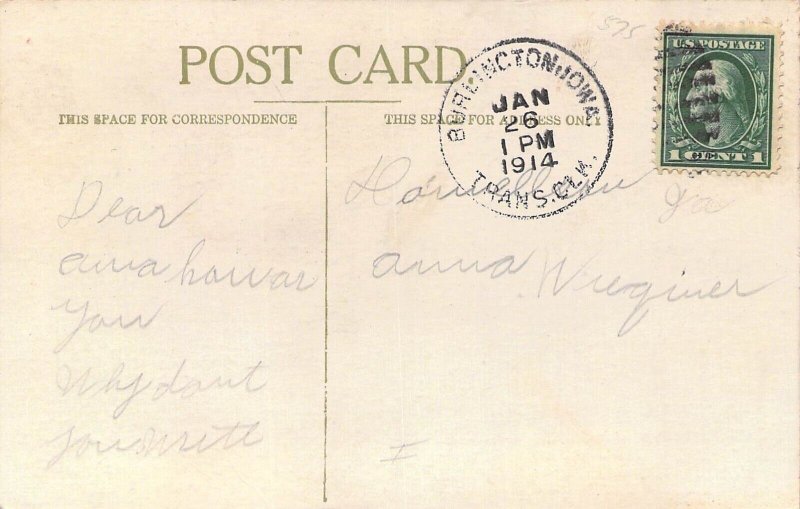 575
POST CARD
THIS SPACE FOR CORRESPONDENCE
THIS SPACE FOR ADDRESS ONLY
BURLINGTON, IOWA
JAN
26
1 PM
1914
TRANS. CLK.
U.S. POSTAGE
1 CENT 1
Dear
anna howar
you
Why dont
you write
Ia
anna
I